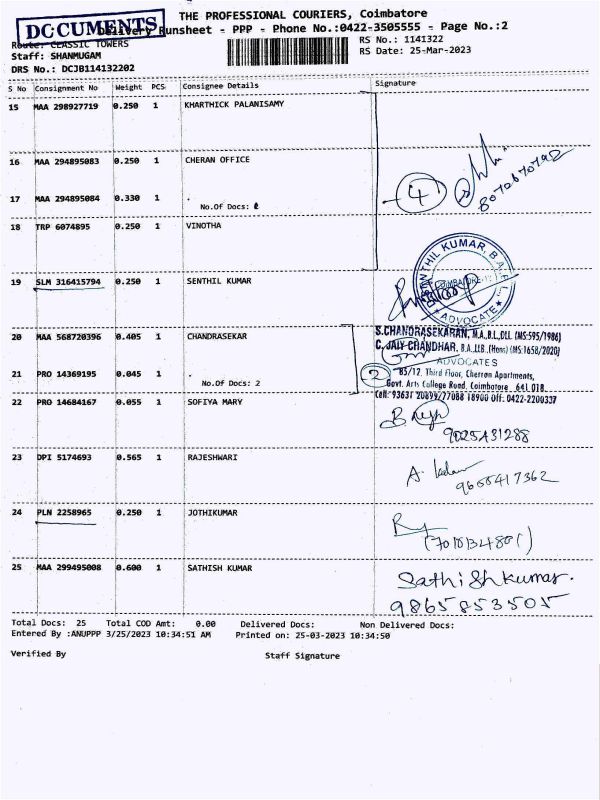 THE PROFESSIONAL COURIERS, Coimbatore
DOCUMENTS
Delivery Runsheet - PPP - Phone No.:0422-3505555 - Page No.:2
Route: CLASSIC TOWERS
RS No.: 1141322
Staff: SHANMUGAM
RS Date: 25-Mar-2023
DRS No.: DCJB114132202
S No Consignment No Weight PCS Consignee Details Signature
15 MAA 298927719 0.250 1 KHARTHICK PALANISAMY
16 MAA 294895083 0.250 1 CHERAN OFFICE
17 MAA 294895084 0.330 1 .
No.Of Docs:
4
8070670792
18 TRP 6074895 0.250 1 VINOTHA
19 SLM 316415794 0.250 1 SENTHIL KUMAR
KUMAR, B.A.
ADVOCATE
20 MAA 568720396 0.405 1 CHANDRASEKAR
S.CHANDRASEKARAN, M.A.,B.L.,DLL. (MS:595/1986)
C. JAIY CHANDHAR, B.A.,LLB.,(Hons) (MS:1658/2020)
ADVOCATES
21 PRO 14369195 0.045 1 .
No.Of Docs: 2
2
85/12, Third Floor, Cherran Apartments,
Govt. Arts College Road, Coimbatore - 641 018.
Cell: 93631 20899/77088 18900 Off: 0422-2200337
22 PRO 14684167 0.055 1 SOFIYA MARY
9025431288
23 DPI 5174693 0.565 1 RAJESHWARI
9655417362
24 PLN 2258965 0.250 1 JOTHIKUMAR
25 MAA 299495008 0.600 1 SATHISH KUMAR
Sathishkumar.
9865853505
Total Docs: 25 Total COD Amt: 0.00 Delivered Docs: Non Delivered Docs:
Entered By :ANUPPP 3/25/2023 10:34:51 AM Printed on: 25-03-2023 10:34:50
Verified By Staff Signature